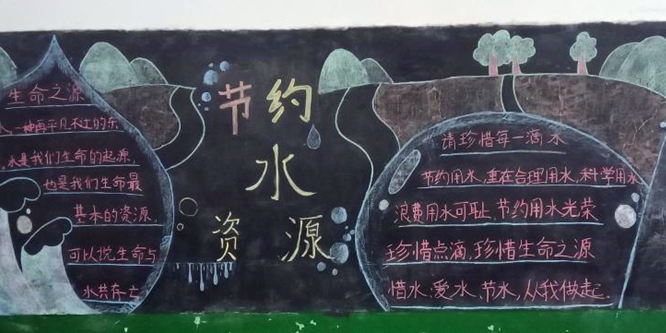 生命之源
水，一种再平凡不过的东
水是我们生命的起源，
也是我们生命最
基本的资源，
可以说生命与
水共存亡
节约
水
资源
请珍惜每一滴水
节约用水，重在合理用水，科学用水
浪费用水可耻，节约用水光荣
珍惜点滴，珍惜生命之源
惜水、爱水、节水，从我做起